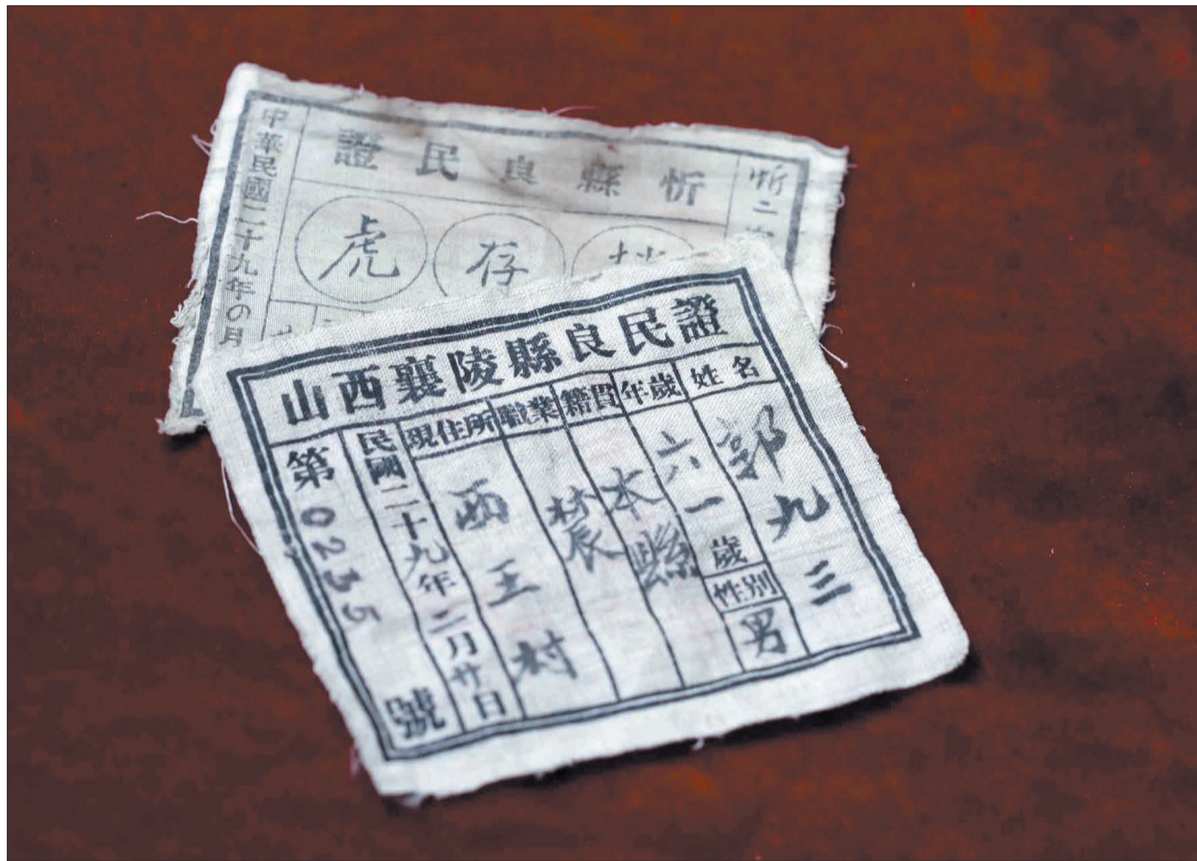 忻縣良民證
忻二
存虎
中華民國二十九年の月
山西襄陵縣良民證
姓名
郭九三
年歲
六一歲
性別
男
籍貫
本縣
職業
農
現住所
西王村
民國二十九年二月廿日
第0235號